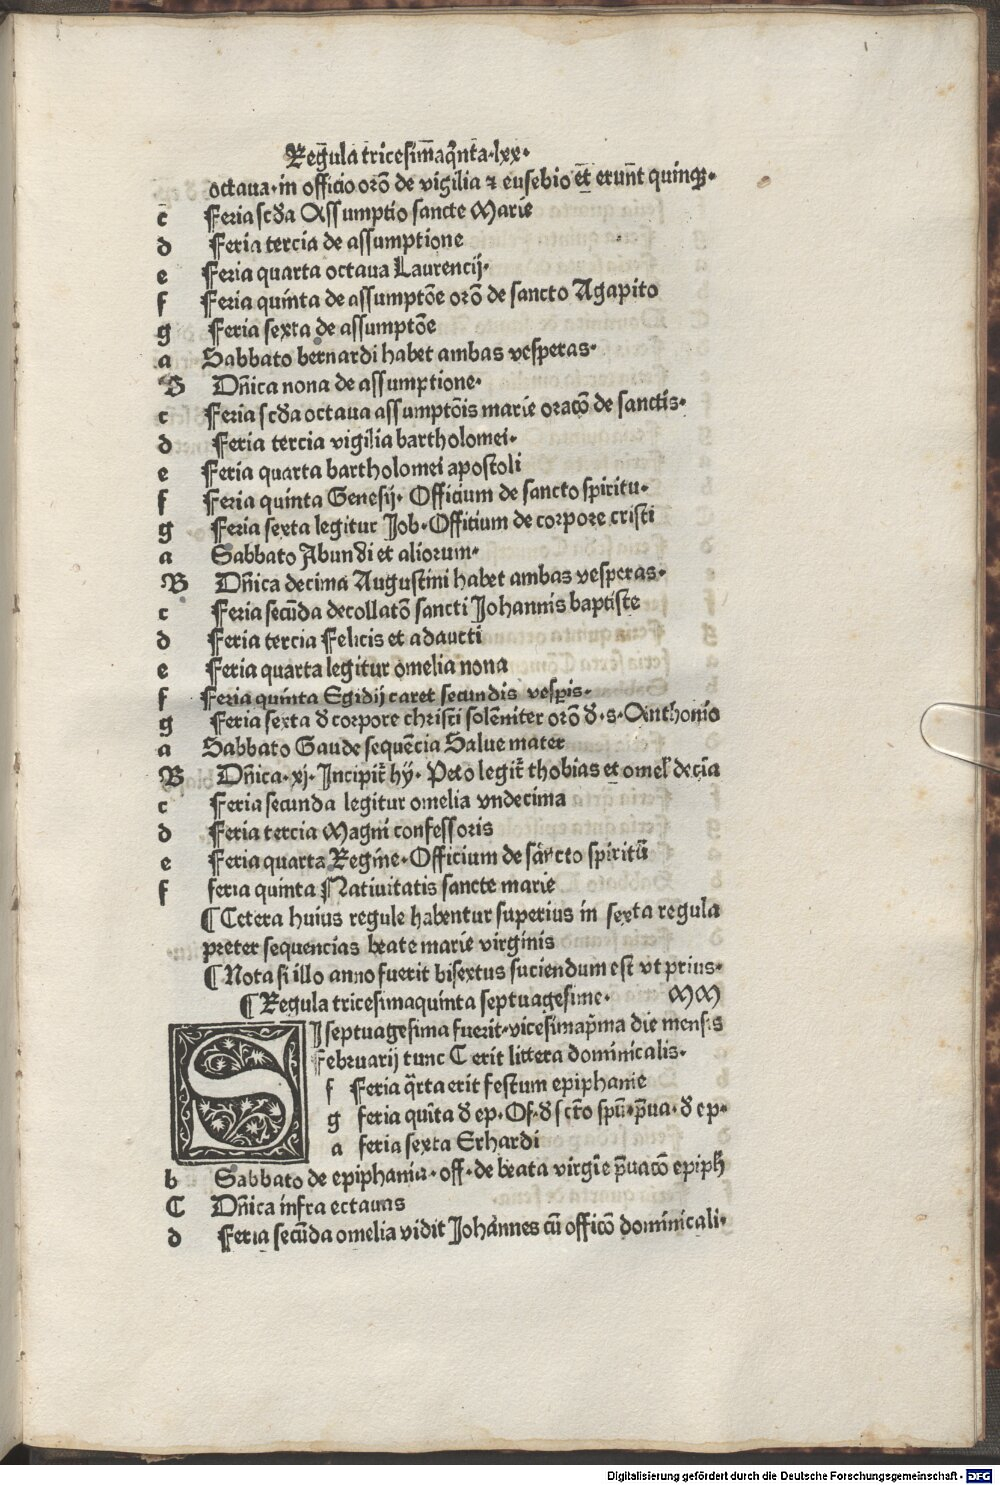 Regula tricesimaq̄nta·lxx·
octaua·in officio orō de vigilia ⁊ eusebio et̄ erūnt quinqꝫ·
c Feria scd̄a Assumptio sancte Marie
d Feria tercia de assumptione
e Feria quarta octaua Laurencij·
f Feria quinta de assumptōe orō de sancto Agapito
g Feria sexta de assumptōe
a Sabbato bernardi habet ambas vesperas·
B Dn̄ica nona de assumptione·
c Feria scd̄a octaua assumptōis marie oracō de sanctis·
d Feria tercia vigilia bartholomei·
e Feria quarta bartholomei apostoli
f Feria quinta Genesij· Officium de sancto spiritu·
g Feria sexta legitur Job·Offitium de corpore cristi
a Sabbato Abundi et aliorum·
B Dn̄ica decima Augustini habet ambas vesperas·
c Feria secūda decollatō sancti Johannis baptiste
d Feria tercia Felicis et adaucti
e Feria quarta legitur omelia nona
f Feria quinta Egidij caret secundis vesp̄is·
g Feria sexta d̄ corpore christi solēniter orō d̄·s·Anthonio
a Sabbato Gaude sequēcia Salue mater
B Dn̄ica·xj·Incipit̄ hy·Peto legit̄ thobias et omel̄ decīa
c Feria secunda legitur omelia vndecima
d Feria tercia Magni confessoris
e Feria quarta Regine·Officium de sancto spiritū
f feria quinta Natiuitatis sancte marie
¶Cetera huius regule habentur superius in sexta regula
preter sequencias beate marie virginis
¶Nota si illo anno fuerit bisextus faciendum est vt prius·
¶Regula tricesimaquinta septuagesime· MM
SI septuagesima fuerit·vicesimap̄ma die mensis
Februarij tunc C erit littera dominicalis·
f Feria q̄rta erit festum epiphanie
g feria quīta d̄ ep·Of·d̄ sct̄o spū·p̄ua·d̄ ep·
a feria sexta Erhardi
b Sabbato de epiphania·off·de beata virgīe p̄uacō epiph̄
C Dn̄ica infra octauas
d Feria secūda omelia vidit Johannes cū officō dominicali·
Digitalisierung gefördert durch die Deutsche Forschungsgemeinschaft - DFG